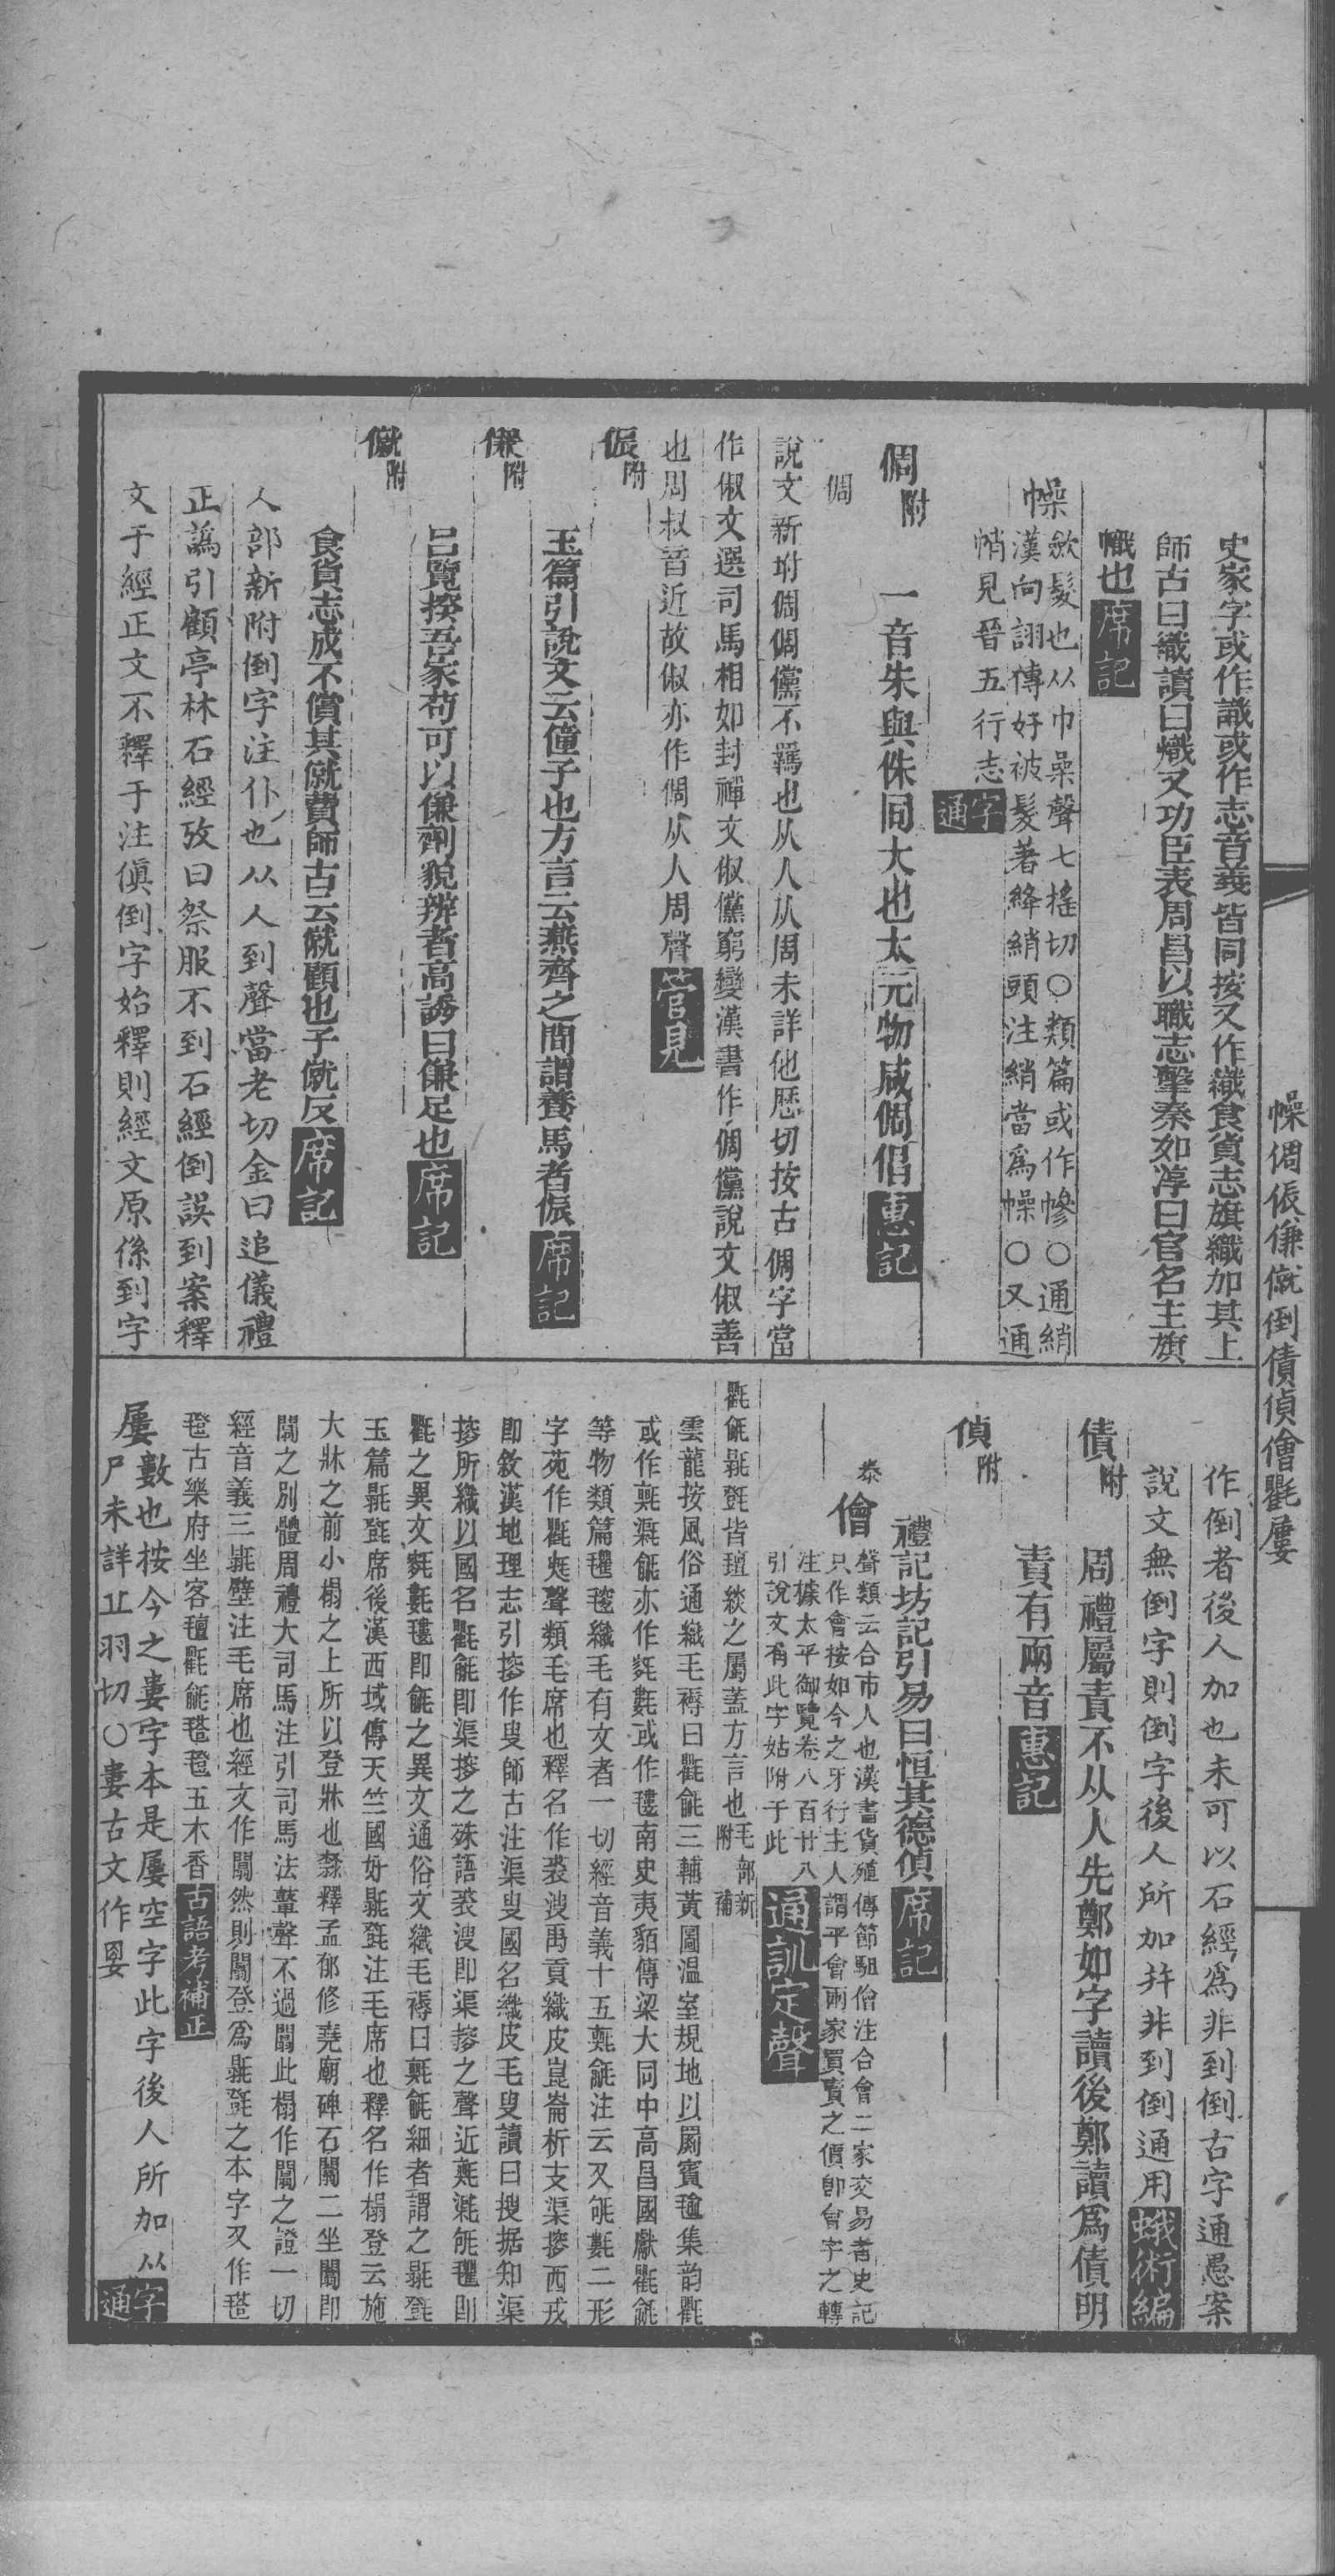 幧倜㑞傔僦倒債偵儈氍屢
史家字或作識或作志音義皆同按又作織食貨志旗織加其上
師古曰織讀曰熾又功臣表周昌以職志擊秦如淳曰官名主旗
幟也席記
幧
斂髮也从巾喿聲七搖切○類篇或作幓○通綃
漢向詡傳好被髮著絳綃頭注綃當爲幧○又通
帩見晉五行志通字
倜附
一音朱與侏同大也太元物咸倜倡惠記
倜
說文新坿倜倜儻不羈也从人从周未詳他歷切按古倜字當
作俶文選司馬相如封禪文俶儻窮變漢書作倜儻說文俶善
也周叔音近故俶亦作倜从人周聲管見
㑞附
玉篇引說文云僮子也方言云燕齊之間謂養馬者㑞席記
傔附
呂覽揆吾家苟可以傔劑貌辨者高誘曰傔足也席記
僦附
食貨志成不償其僦費師古云僦顧也子僦反席記
人部新附倒字注仆也从人到聲當老切金曰追儀禮
正譌引顧亭林石經攷曰祭服不到石經倒誤到案釋
文于經正文不釋于注傎倒字始釋則經文原係到字
作倒者後人加也未可以石經爲非到倒古字通愚案
說文無倒字則倒字後人所加幷非到倒通用蛾術編
債附
周禮屬責不从人先鄭如字讀後鄭讀爲債明
責有兩音惠記
偵附
禮記坊記引易曰恒其德偵席記
泰
儈
聲類云合市人也漢書貨殖傳節駔儈注合會二家交易者史記
只作會按如今之牙行主人謂平會兩家買賣之價卽會字之轉
注據太平御覽卷八百廿八
引說文有此字姑附于此
通訓定聲
氍毹毾㲪皆㲜緂之屬蓋方言也毛部新附補
雲龍按風俗通織毛褥曰氍毹三輔黃圖温室規地以罽賓氍集韵氍
或作㲘㴾毹亦作㲣㲣或作氀南史夷貊傳梁大同中高昌國獻氍毹
等物類篇氍毾織毛有文者一切經音義十五㲘毹注云又毹㲣二形
字苑作氍㲘聲類毛席也釋名作裘溲禹貢織皮崑崙析支渠搜西戎
卽敘漢地理志引搜作叟師古注渠叟國名織皮毛叟讀曰搜据知渠
搜所織以國名氍毹卽渠搜之殊語裘溲卽渠搜之聲近㲘㲣毹氍卽
氍之異文㲣㲣氀卽毹之異文通俗文織毛褥曰㲘毹細者謂之毾㲪
玉篇毾㲪席後漢西域傳天竺國好毾㲪注毛席也釋名作榻登云施
大牀之前小榻之上所以登牀也隸釋孟郁修堯廟碑石闟二坐闟卽
闒之別體周禮大司馬注引司馬法鼙聲不過闒此榻作闒之證一切
經音義三毾壁注毛席也經文作闒然則闒登爲毾㲪之本字又作㲮
㲪古樂府坐客氈氍毹㲮㲪五木香古語考補正
屢
數也按今之婁字本是屢空字此字後人所加从
尸未詳丘羽切○婁古文作㛗
通字